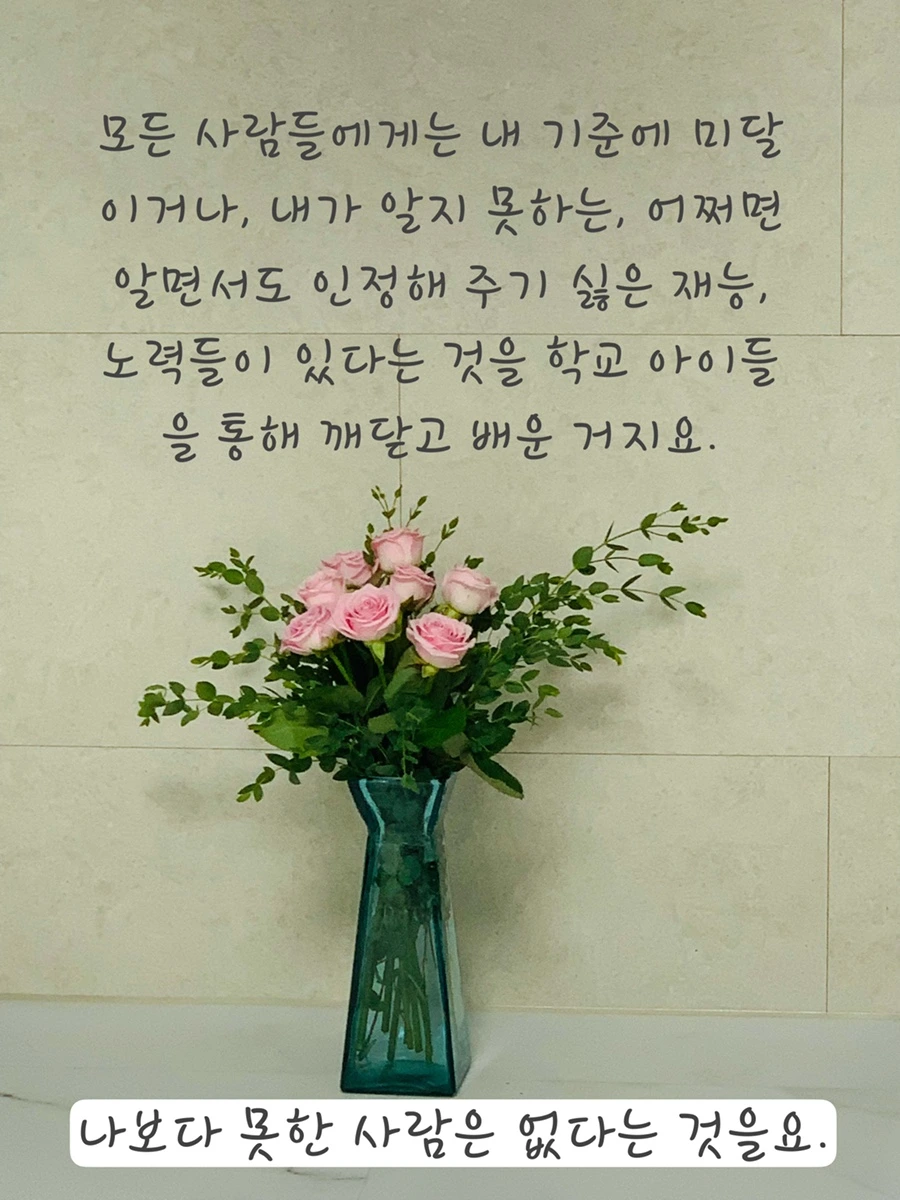 모든 사람들에게는 내 기준에 미달
이거나, 내가 알지 못하는, 어쩌면
알면서도 인정해 주기 싫은 재능,
노력들이 있다는 것을 학교 아이들
을 통해 깨닫고 배운 거지요.
나보다 못한 사람은 없다는 것을요.